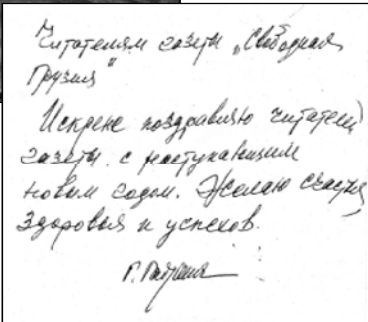 Читателям газеты „Свободная
Грузия"
Искрене поздравляю читателей
газеты с наступающим
новым годом. Желаю счастья,
здоровья и успехов.
Г.